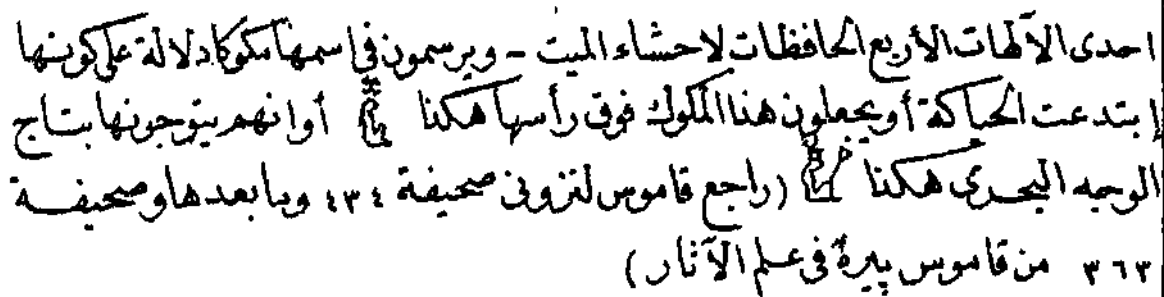 احدى الآلهات الأربع الحافظات لاحشاء الميت - ويرسمون في اسمها مكوكا دلالة على كونها
إبتدعت الحياكة أو يجعلون هذا المكوك فوق رأسها هكذا أو انهم يتوجونها بتاج
الوجه البحرى هكذا (راجع قاموس لنزونى صحيفة ٤٣٤ وما بعدها وصحيفة
٣٦٣ من قاموس پيرهٔ فى علم الآثار)